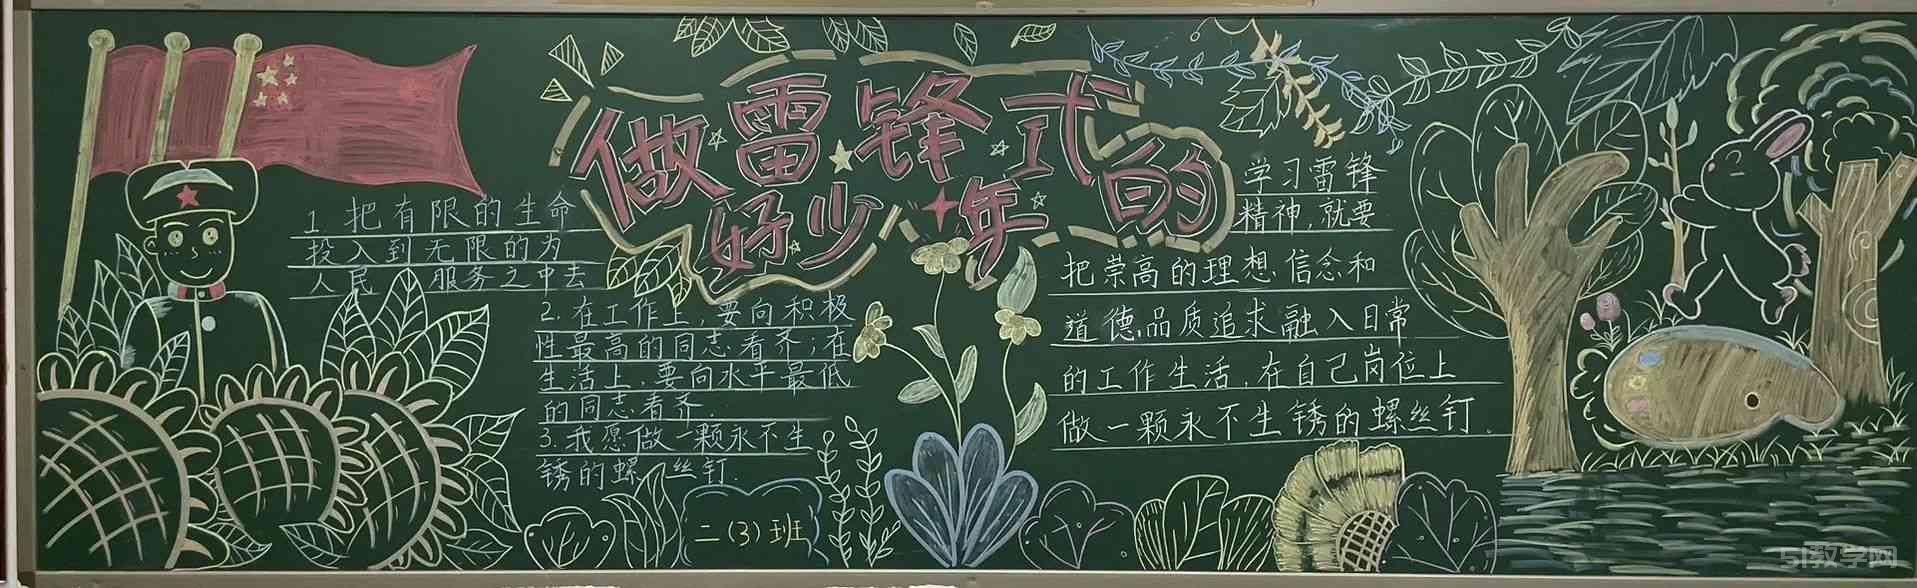 做雷锋式的
好少年
1. 把有限的生命
投入到无限的为
人民服务之中去
2. 在工作上,要向积极
性最高的同志看齐;在
生活上,要向水平最低
的同志看齐.
3. 我愿做一颗永不生
锈的螺丝钉.
二(3)班
学习雷锋
精神,就要
把崇高的理想信念和
道德品质追求融入日常
的工作生活,在自己岗位上
做一颗永不生锈的螺丝钉.
51教学网